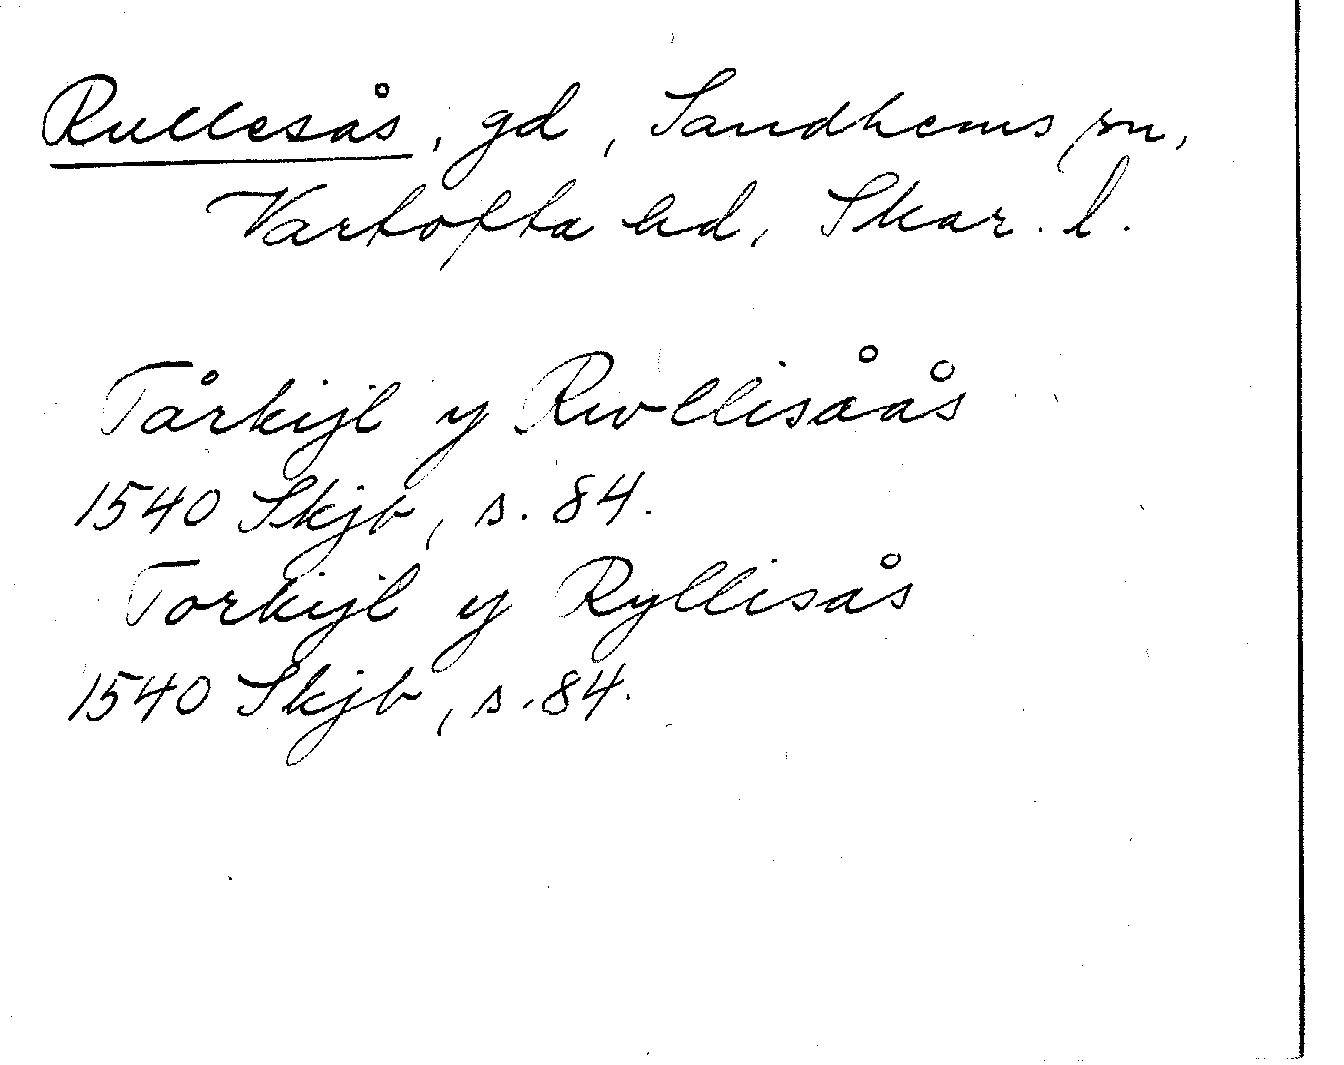 Rullesås, gd, Sandhems sn,
Vartofta hd, Skar. l.
Tårkijl y Rwllisåås
1540 Skjb, s. 84.
Torkijl y Ryllisås
1540 Skjb, s. 84.